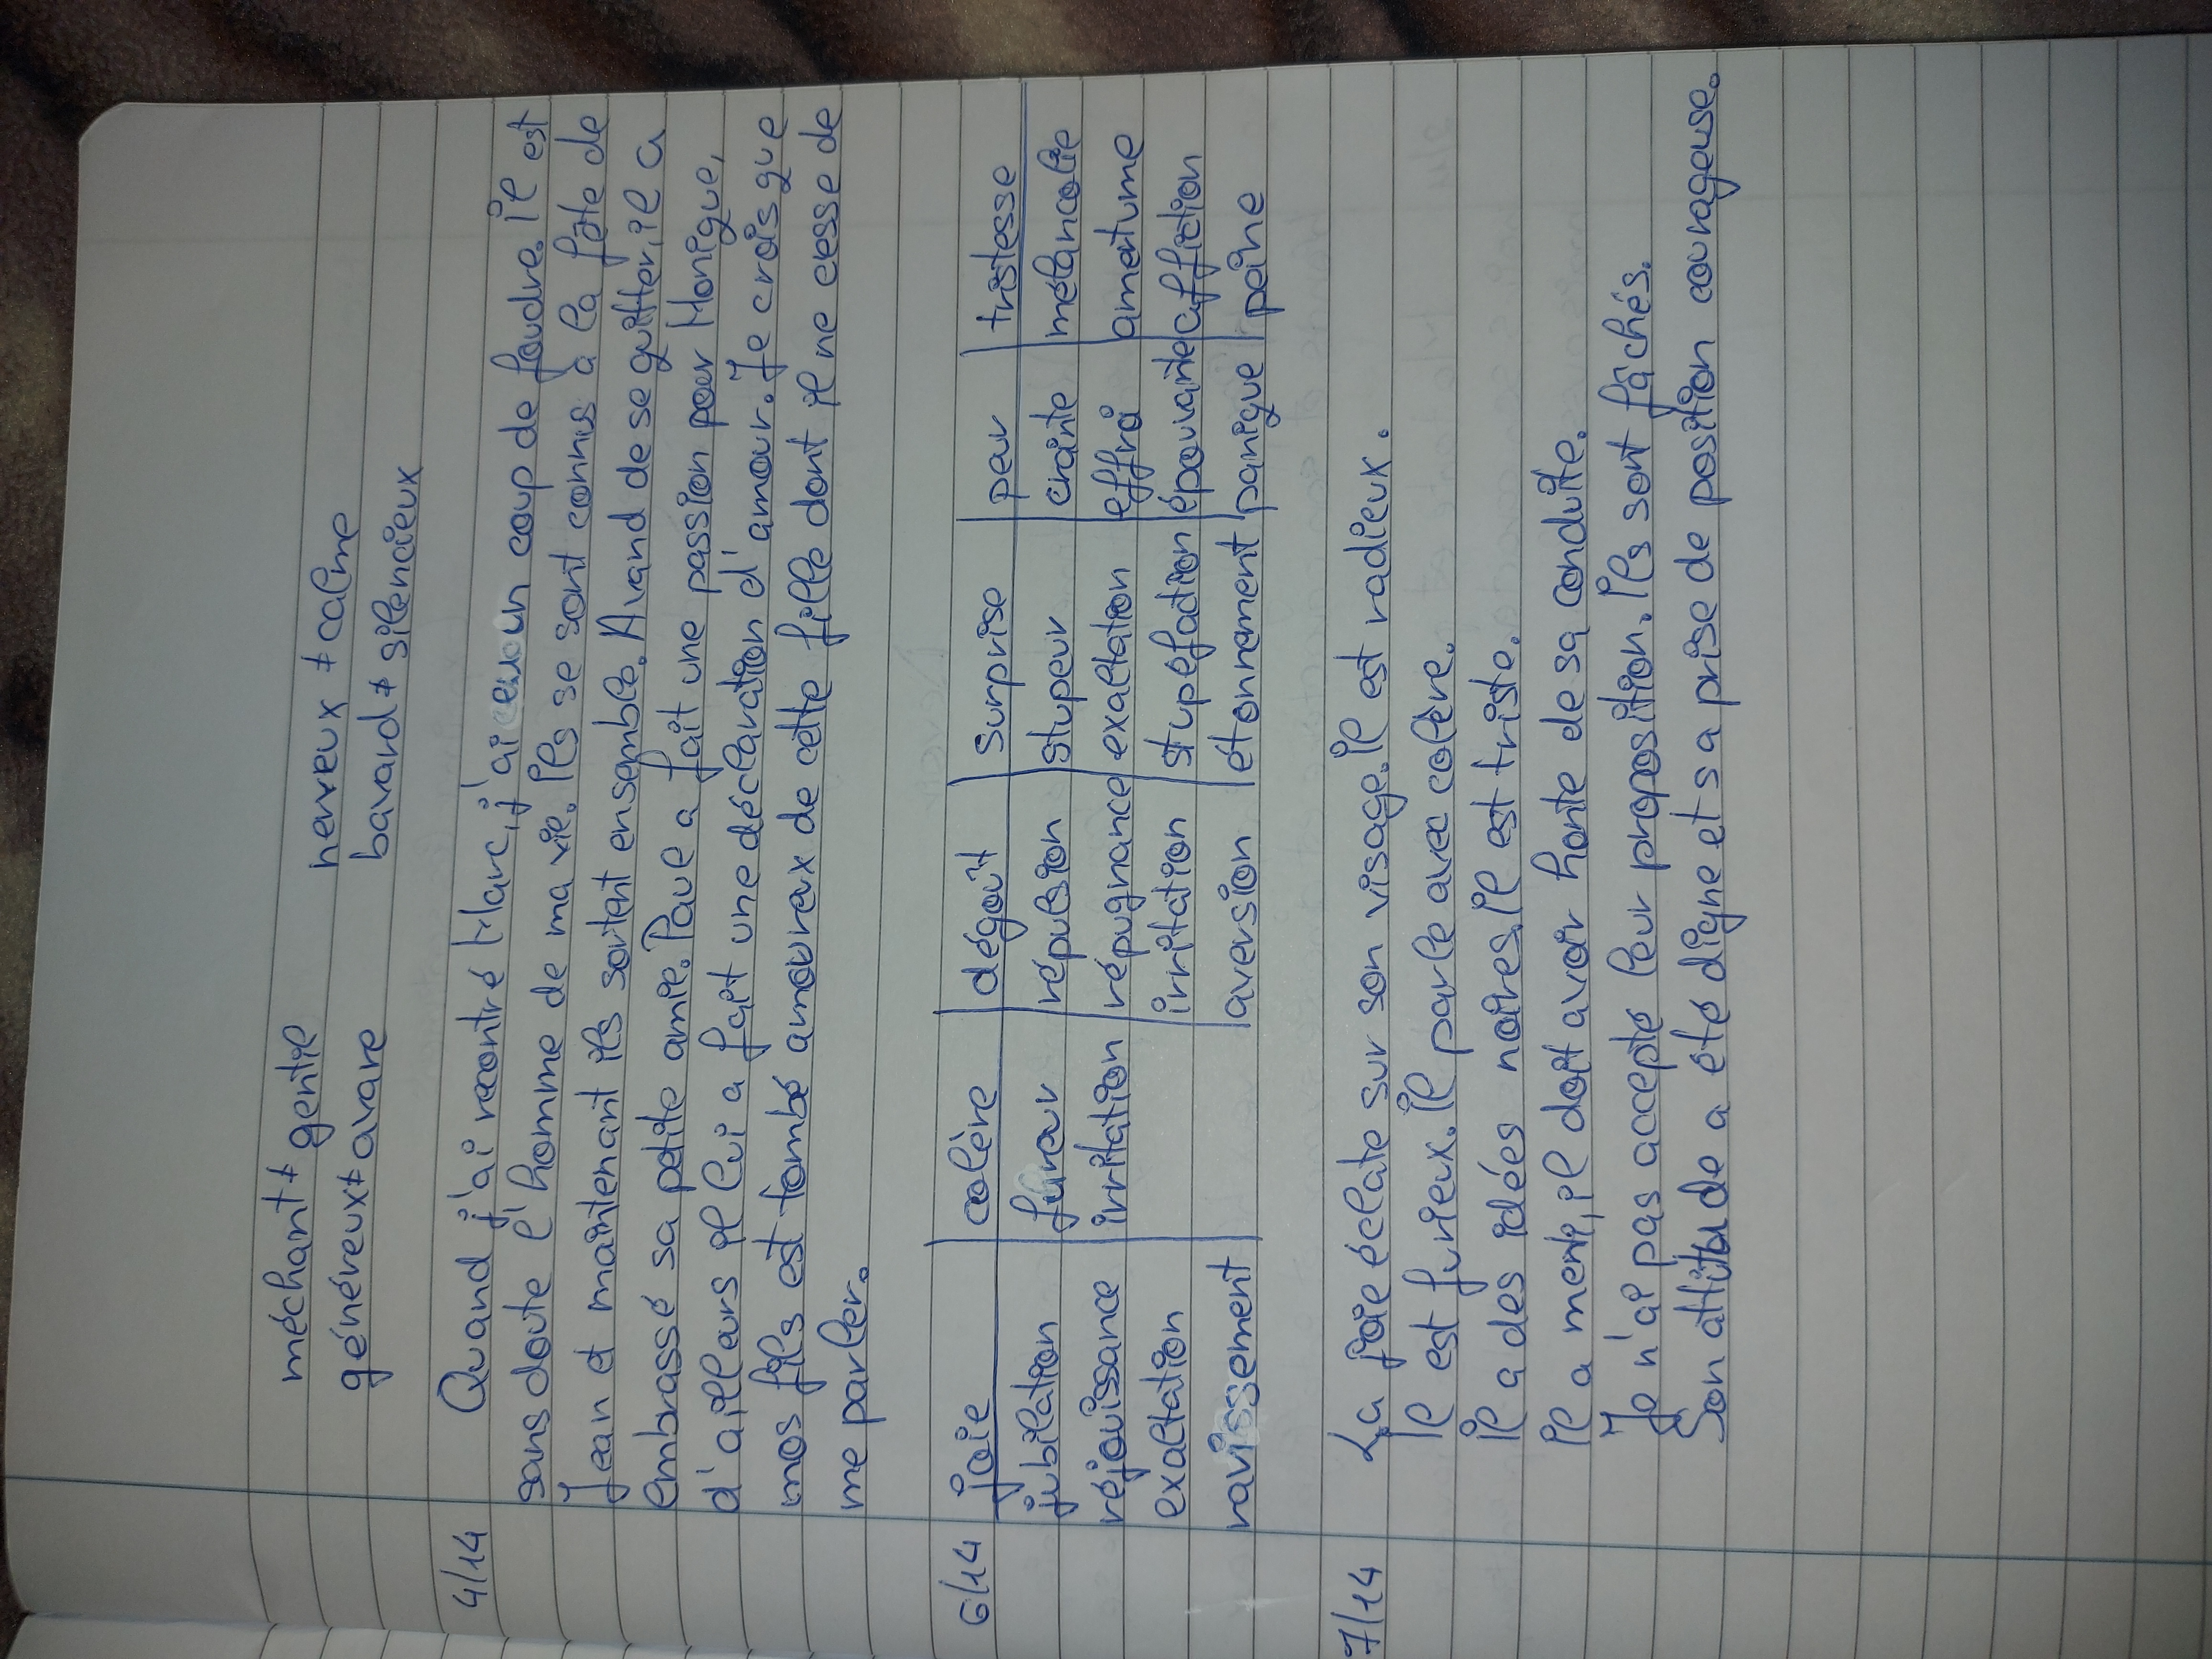 méchant ≠ gentil nerveux ≠ calme
généreux ≠ avare bavard ≠ silencieux
4/14 Quand j'ai recontré Marc, j'ai eu un coup de foudre. il est
sans doute l'homme de ma vie. ils se sont connus à la fête de
Jean et maintenant ils sortent ensemble. Avand de se quitter, il a
embrassé sa petite amie. Paul a fait une passion pour Monique,
d'ailleurs il lui a fait une déclaration d'amour. Je crois que
mos fils est tombé amoureux de cette fille dont il ne cesse de
me parler.
6/14 joie colère dégoût surprise peur tristesse
jubilation fureur répulsion stupeur crainte mélancolie
réjouissance irritation répugnance exaltation effroi amertume
exaltation irritation stupéfaction épouvante affliction
ravissement aversion étonnement panique peine
7/14 La joie éclate sur son visage. il est radieux.
il est furieux. il parle avec colère.
il a des idées noires. il est triste.
il a menti, il doit avoir honte de sa conduite.
Je n'ai pas accepté leur proposition. ils sont fâchés.
Son attitude a été digne et sa prise de position courageuse.